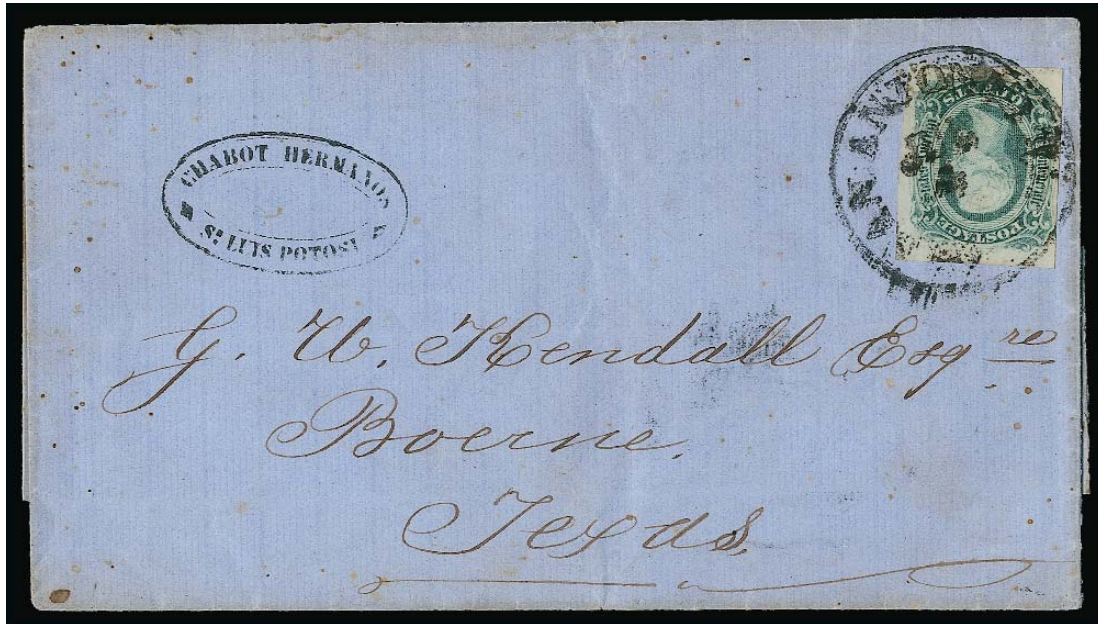 CHABOT HERMANOS
Sn LUIS POTOSI
SAN ANTONIO
POSTAGE
CENTS
G. W. Kendall Esqre
Boerne,
Texas